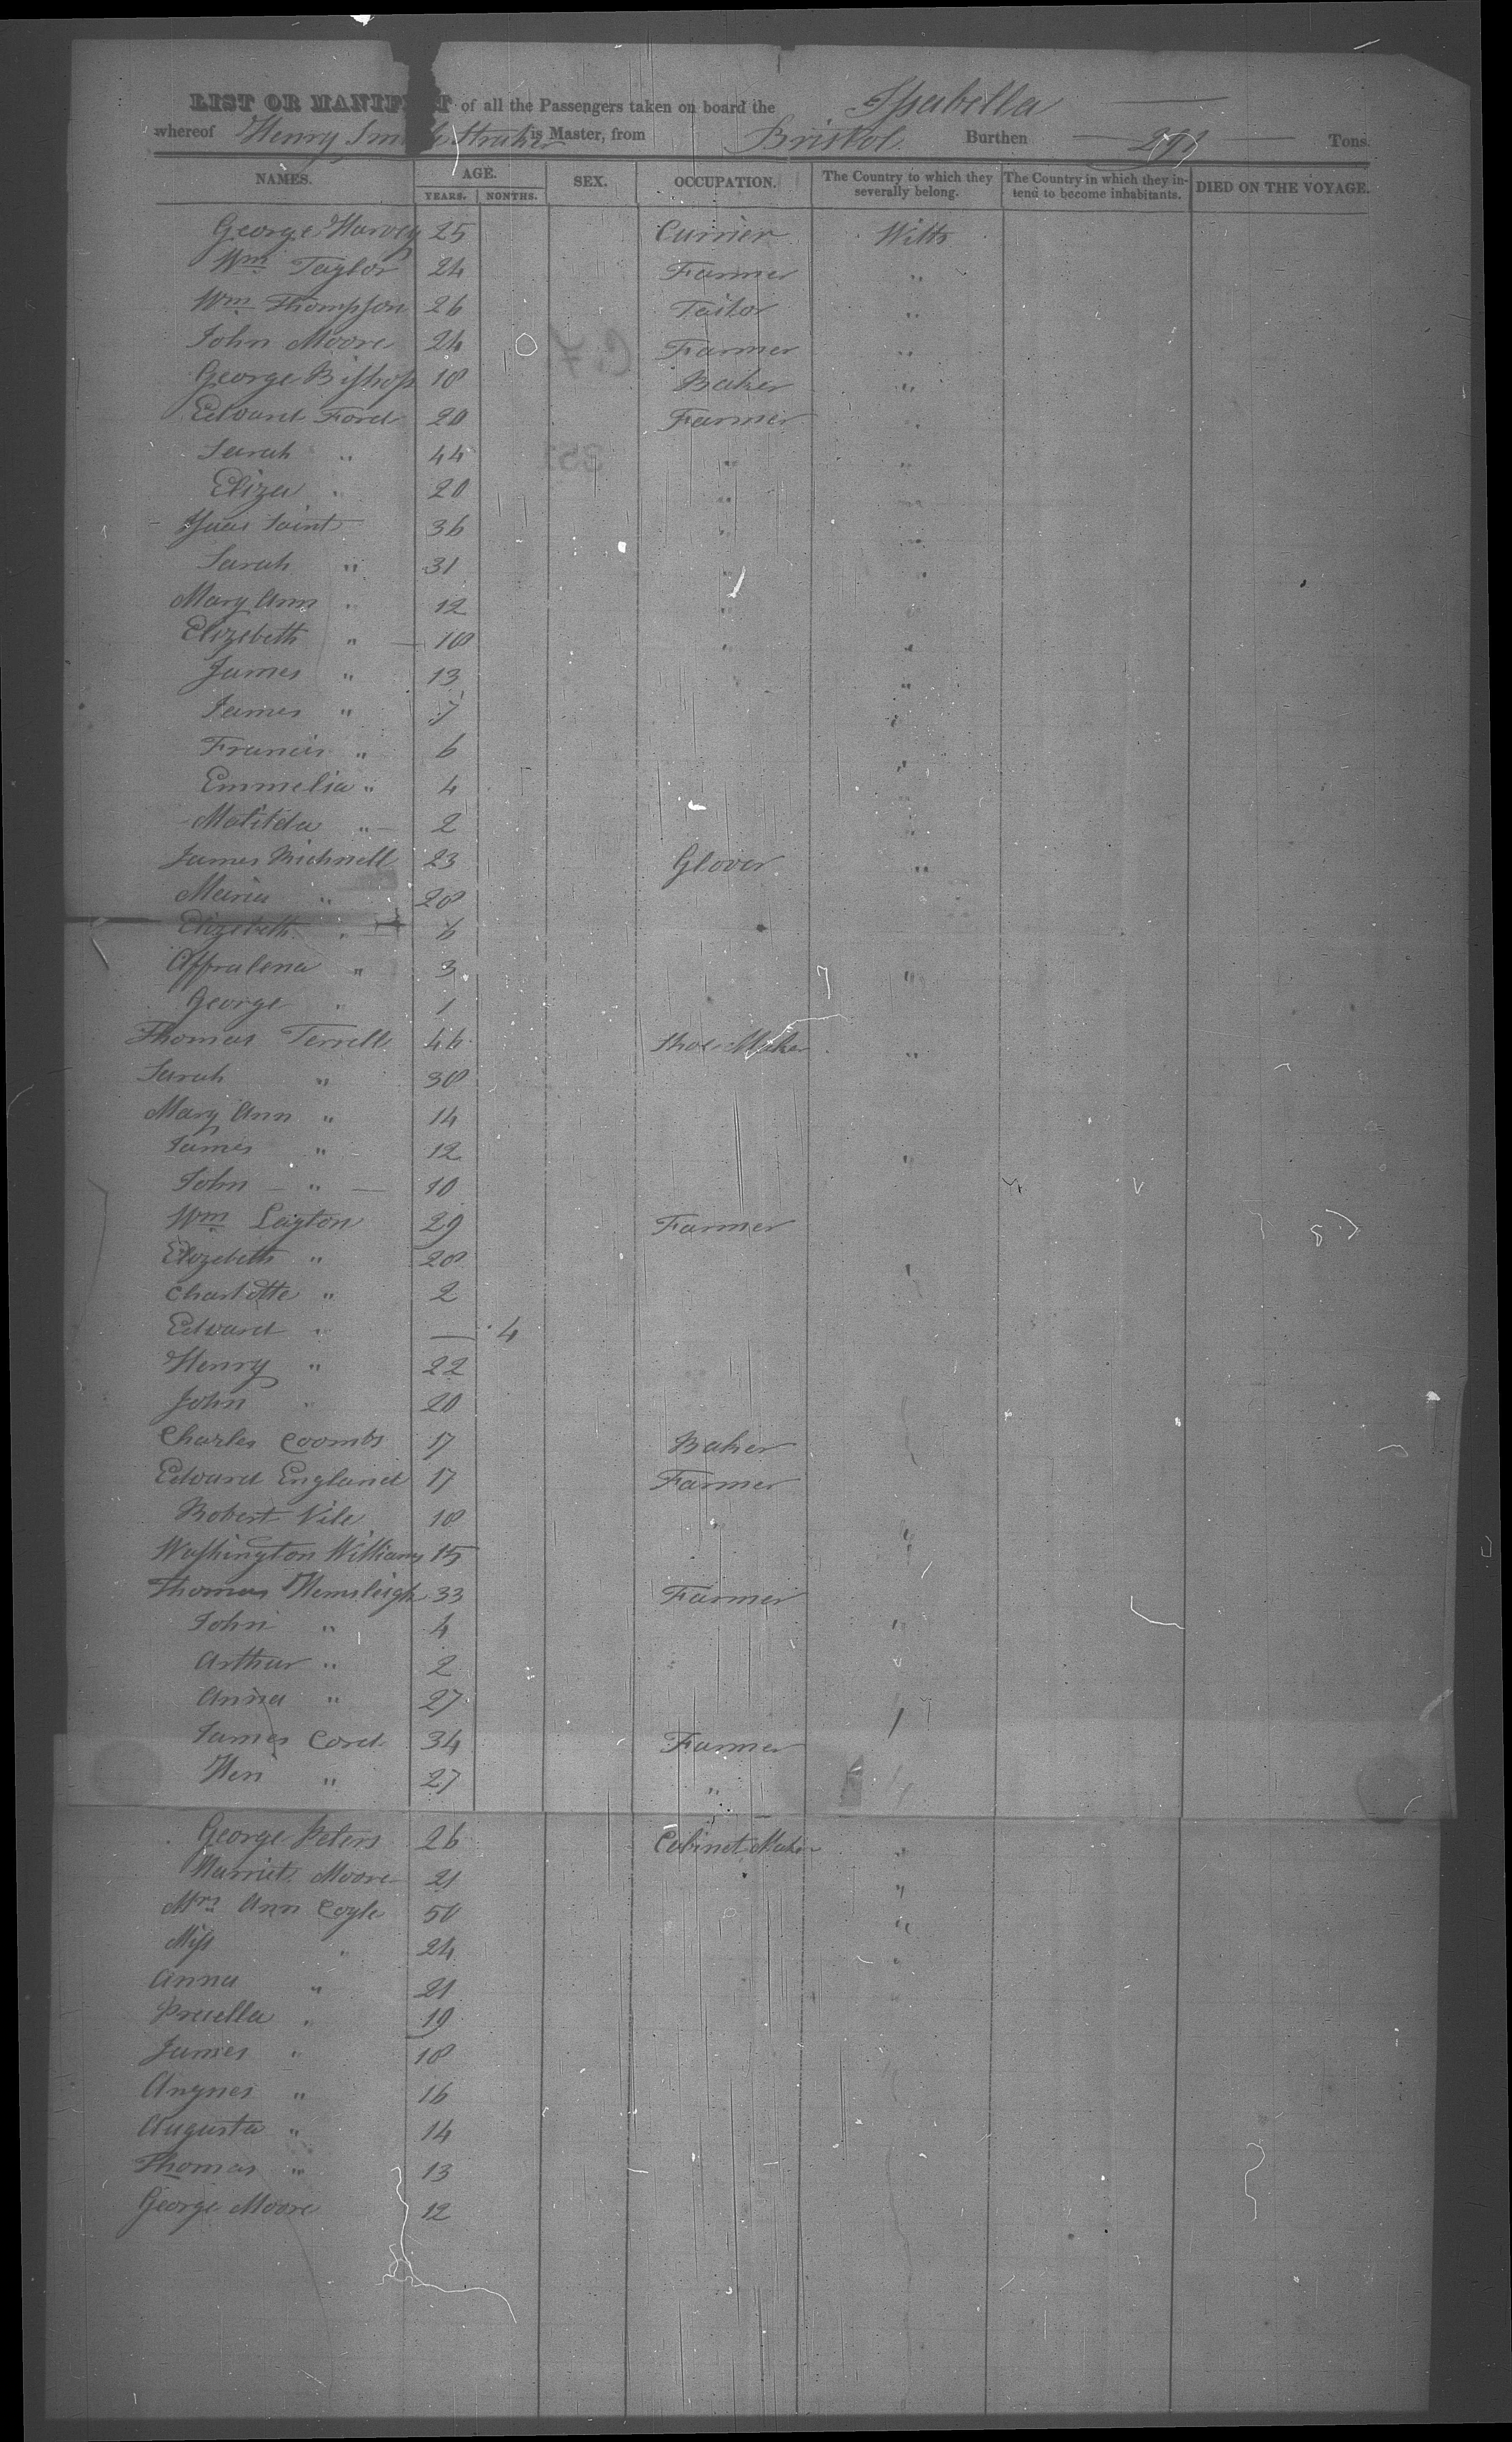 LIST OR MANIF T of all the Passengers taken on board the Isabella
whereof Henry is Master, from Bristol Burthen Tons.
NAMES. AGE. SEX. OCCUPATION. The Country to which they severally belong. The Country in which they intend to become inhabitants. DIED ON THE VOYAGE.
YEARS. MONTHS.
George Harvey 25 Currier Wilts
Wm Taylor 24 Farmer "
Wm Thompson 26 Tailor "
John Moore 24 Farmer "
George Bishop 18 Baker "
Edward Ford 20 Farmer "
Sarah " 44 " "
Eliza " 20 " "
Saint 36 " "
Sarah " 31 " "
Mary Ann " 12 " "
Elizebeth " 18 " "
James " 13 "
James " 7 "
Francis " 6 "
Emmelia " 4 "
Matilda " 2 "
James Bichnell 23 Glover "
Maria " 28
Elizebeth " 6
Affralena " 3 "
George " 1
Thomas Terrell 46 Shoe Maker "
Sarah " 38
Mary Ann " 14
James " 12 "
John " 10
Wm Leyton 29 Farmer
Elizebeth " 28 "
Charlotte " 2
Edward " — 4
Henry " 22
John " 20
Charles Coombs 17 Baker
Edward England 17 Farmer
Robert Vile 18 " "
Washington Williams 15 "
Thomas Hemsleigh 33 Farmer
John " 4 "
Arthur " 2
Anna " 27 "
James Cord 34 Farmer
Hen " 27 "
George Peters 26 Cabinet Maker "
Harriet Moore 21 "
Mrs Ann Coyle 50 "
Miss " 24 "
Anna " 21
Presella " 19
James " 18
Angnes " 16
Augusta " 14
Thomas " 13
George Moore 12